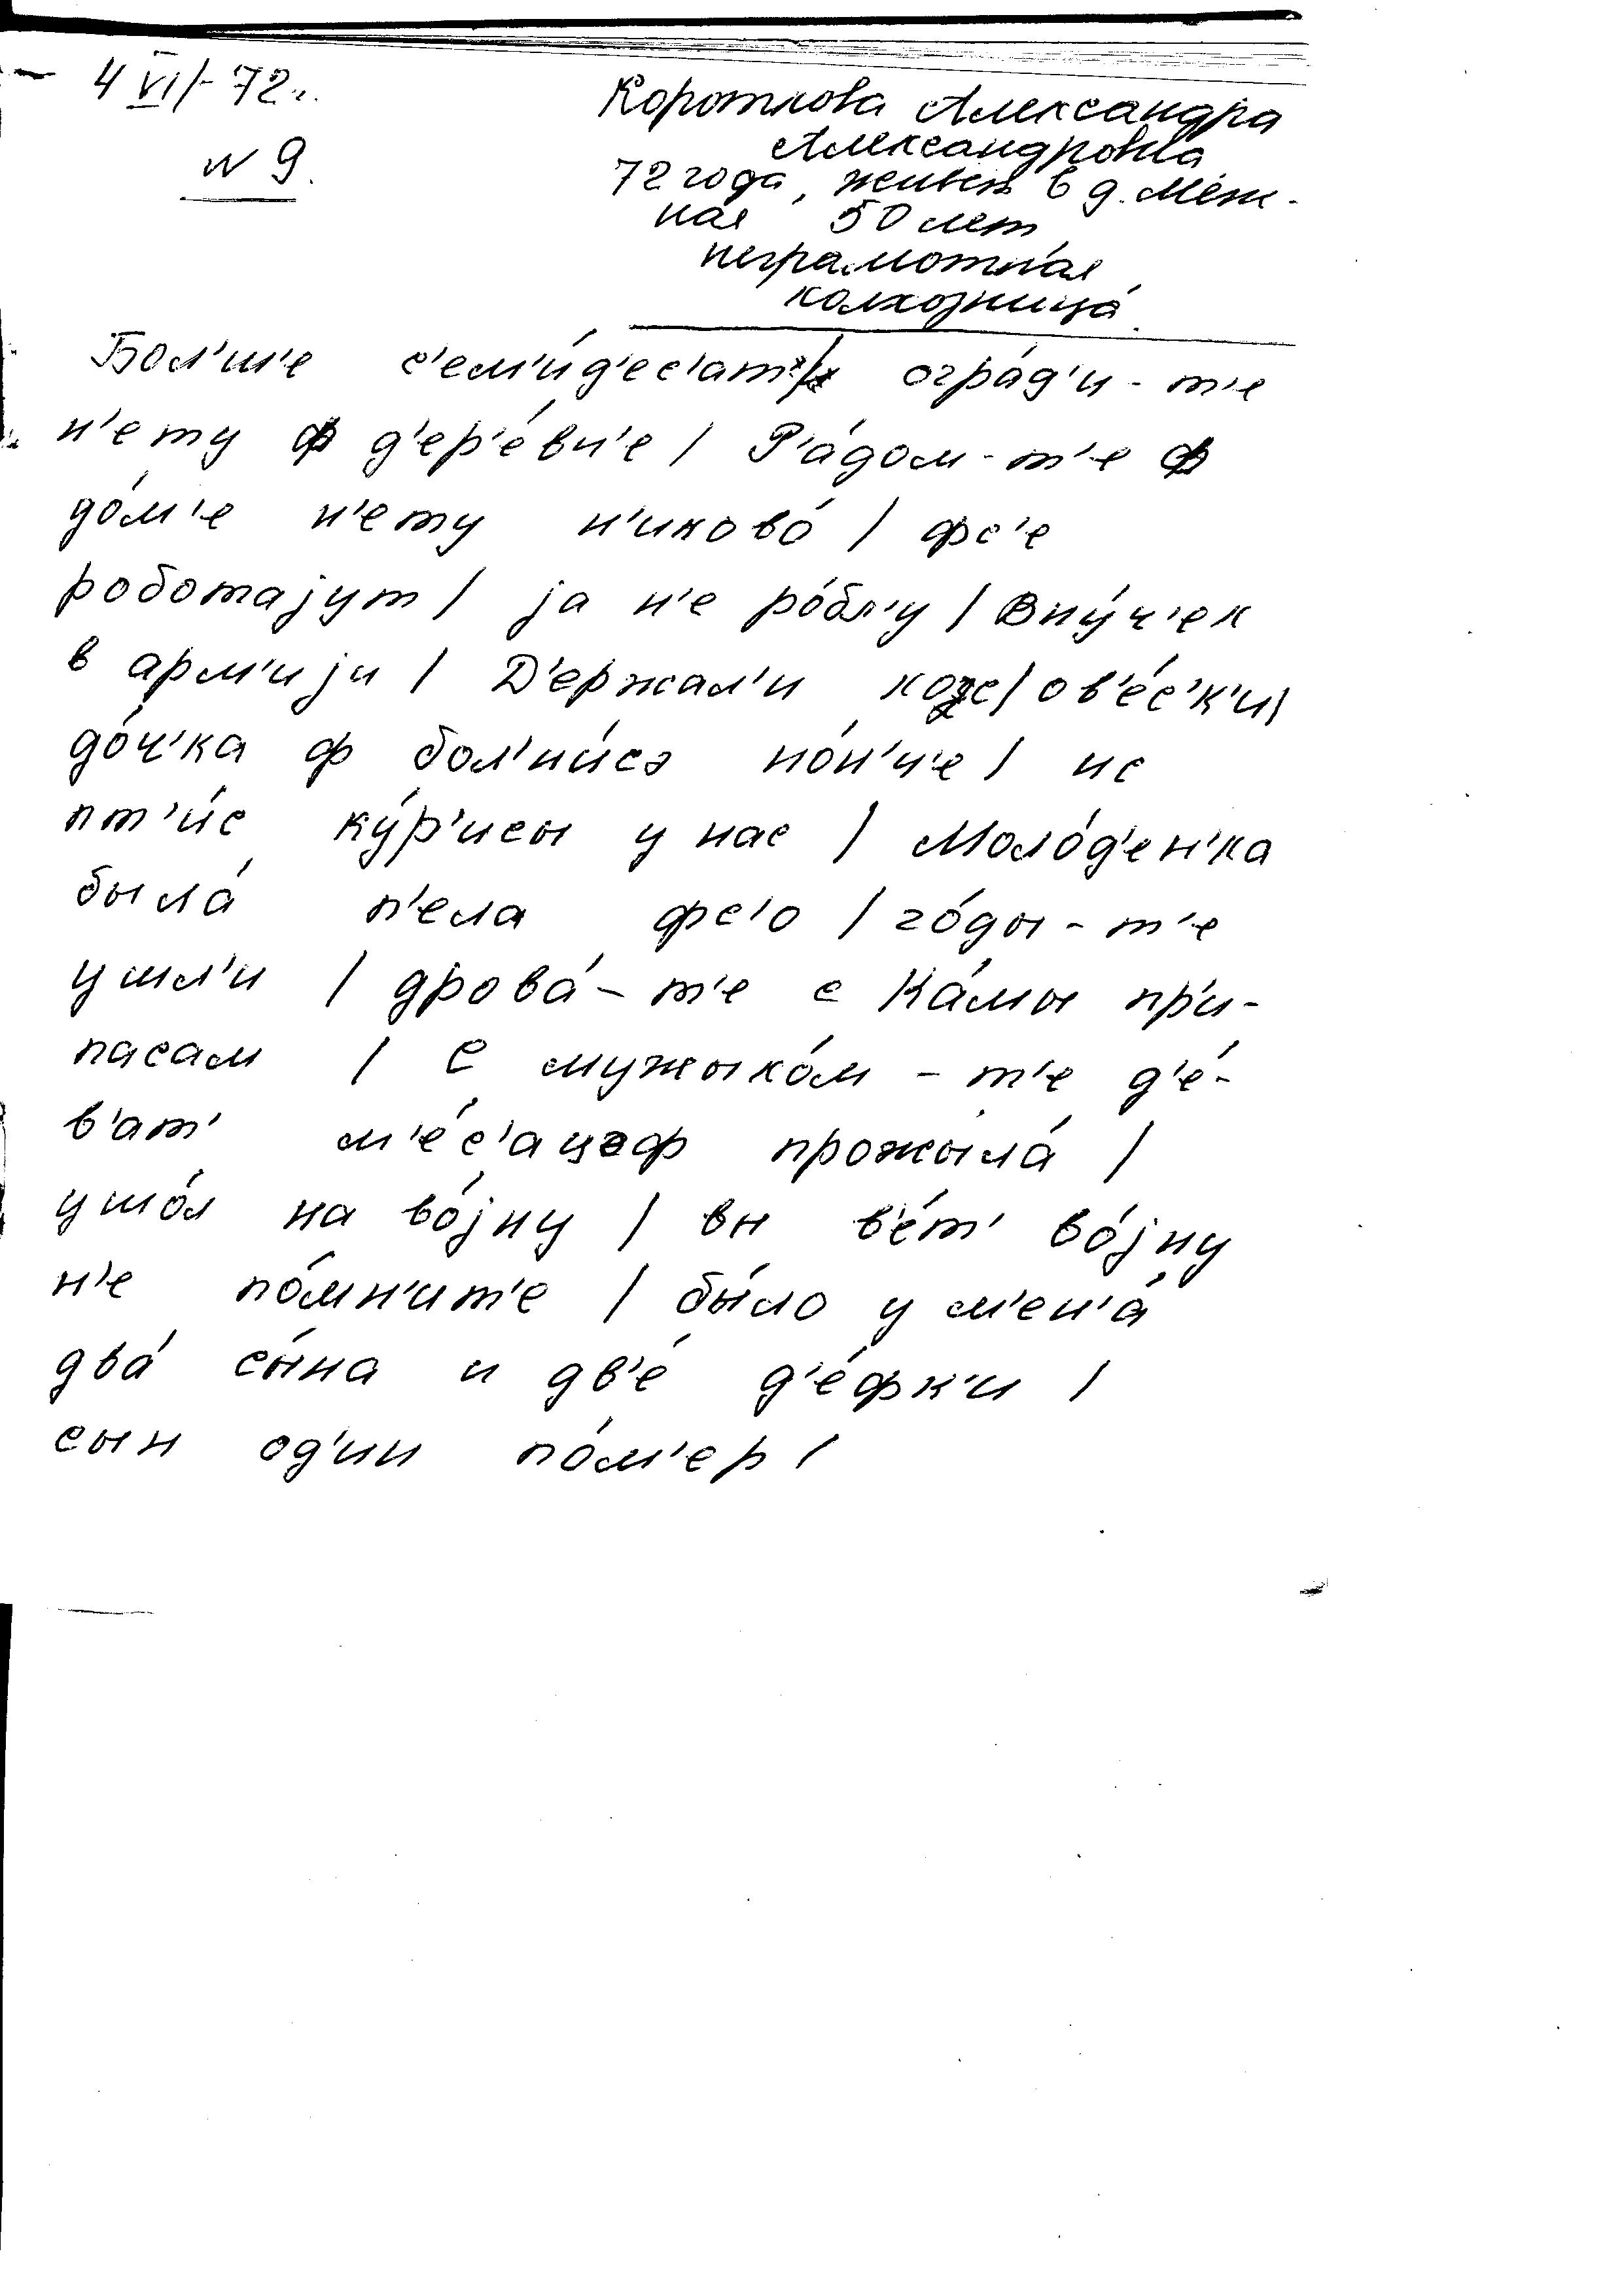 4 VI/-72г.
N 9.
Короткова Александра
Александровна
72 года, живет в д. Меж-
ная 50 лет
неграмотная
колхозница.
Бол'ш'е с'ем'и́д'ес'ат' огра́д'и-т'е
н'ету ф д'ер'е́вн'е / Р'а́дом-т'е ф
до́м'е н'ету н'иково́ / фс'е
роботаjут / jа н'е ро́бл'у / Вну́ч'ек
в арм'иjи / Д'ержал'и козс / ов'е́с'к'и /
до́ч'ка ф бол'ни́сэ но́н'ч'е / ис
пт'и́с ку́р'исы у нас / Моло́д'ен'ка
была́ п'ела фс'о / го́ды-т'е
ушл'и / дрова́-т'е с Ка́мы пр'и-
пасам / С мужыко́м-т'е д'е́-
в'ат' м'е́с'ацэф прожыла́ /
ушо́л на во́jну / вы в'е́т' во́jну
н'е по́мн'ит'е / бы́ло у м'ен'а́
два́ сы́на и дв'е́ д'е́фк'и /
сын од'ин по́м'ер /